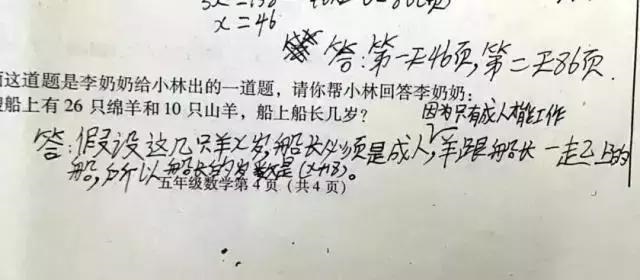 x=46
答:第一天46页,第二天86页.
这道题是李奶奶给小林出的一道题，请你帮小林回答李奶奶：
船上有 26 只绵羊和 10 只山羊，船上船长几岁？
因为只有成人才能工作
答:假设这几只羊x岁,船长必须是成人,羊跟船长一起上的
船,所以船长的岁数是(x+18)。
五年级数学第 4 页（共 4 页）